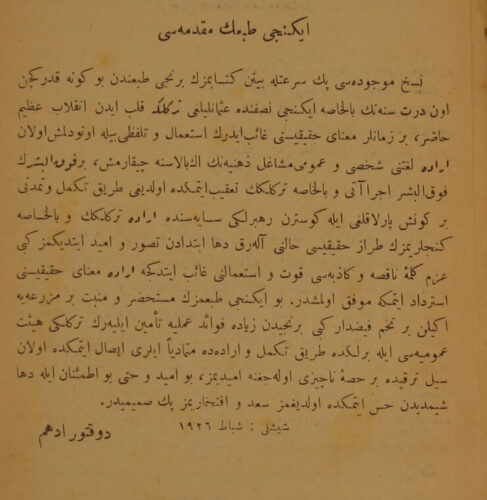 ایكنجی طبعك مقدمه‌سی
نسخ موجوده‌سی پك سرعتله بیتن كتابمزك برنجی طبعندن بو كونه قدر كچن
اون درت سنه‌نك بالخاصه ایكنجی نصفنده عثمانلیلغی تركلكه قلب ایدن انقلاب عظیم
حاضر، بر زمانلر معنای حقیقیسنی غائب ایدرك استعمال و تلفظی بیله اونودلمش اولان
اراده لغتنی شخصی و عمومی مشاغل ذهنیه‌نك اك بالاسنه چیقارمش، بر فوق البشرك
فوق البشر اجراآتی و بالخاصه تركلكك تعقیب ایتمكده اولدیغی طریق تكمل و تمدنی
بر كونش پارلاقلغی ایله كوسترن رهبرلكی سایه‌سنده اراده تركلكك و بالخاصه
كنجلریمزك طراز حقیقیسی حالنی آله‌رق دها ابتدادن تصور و امید ایتدیكمز كبی
عزم كلمهٔ ناقصه و كاذبه‌سی قوت و استعمالنی غائب ایتدكجه اراده معنای حقیقیسنی
استرداد ایتمكه موفق اولمشدر. بو ایكنجی طبعمزك مستحضر و منبت بر مزرعه‌یه
اكیلن بر تخم فیضدار كبی برنجیدن زیاده فوائد عملیه تأمین ایلیه‌رك تركلكی هیئت
عمومیه‌سی ایله برلكده طریق تكمل و اراده‌ده متمادیاً ایلری ایصال ایتمكده اولان
سیل ترقیده بر حصهٔ ناچیزی اوله‌جغنه امیدیمز، بو امید و حتی بو اطمئنان ایله دها
شیمدیدن حس ایتمكده اولدیغمز سعد و افتخاریمز پك صمیمیدر.
شیشلی : شباط ١٩٢٦
دوقتور ادهم